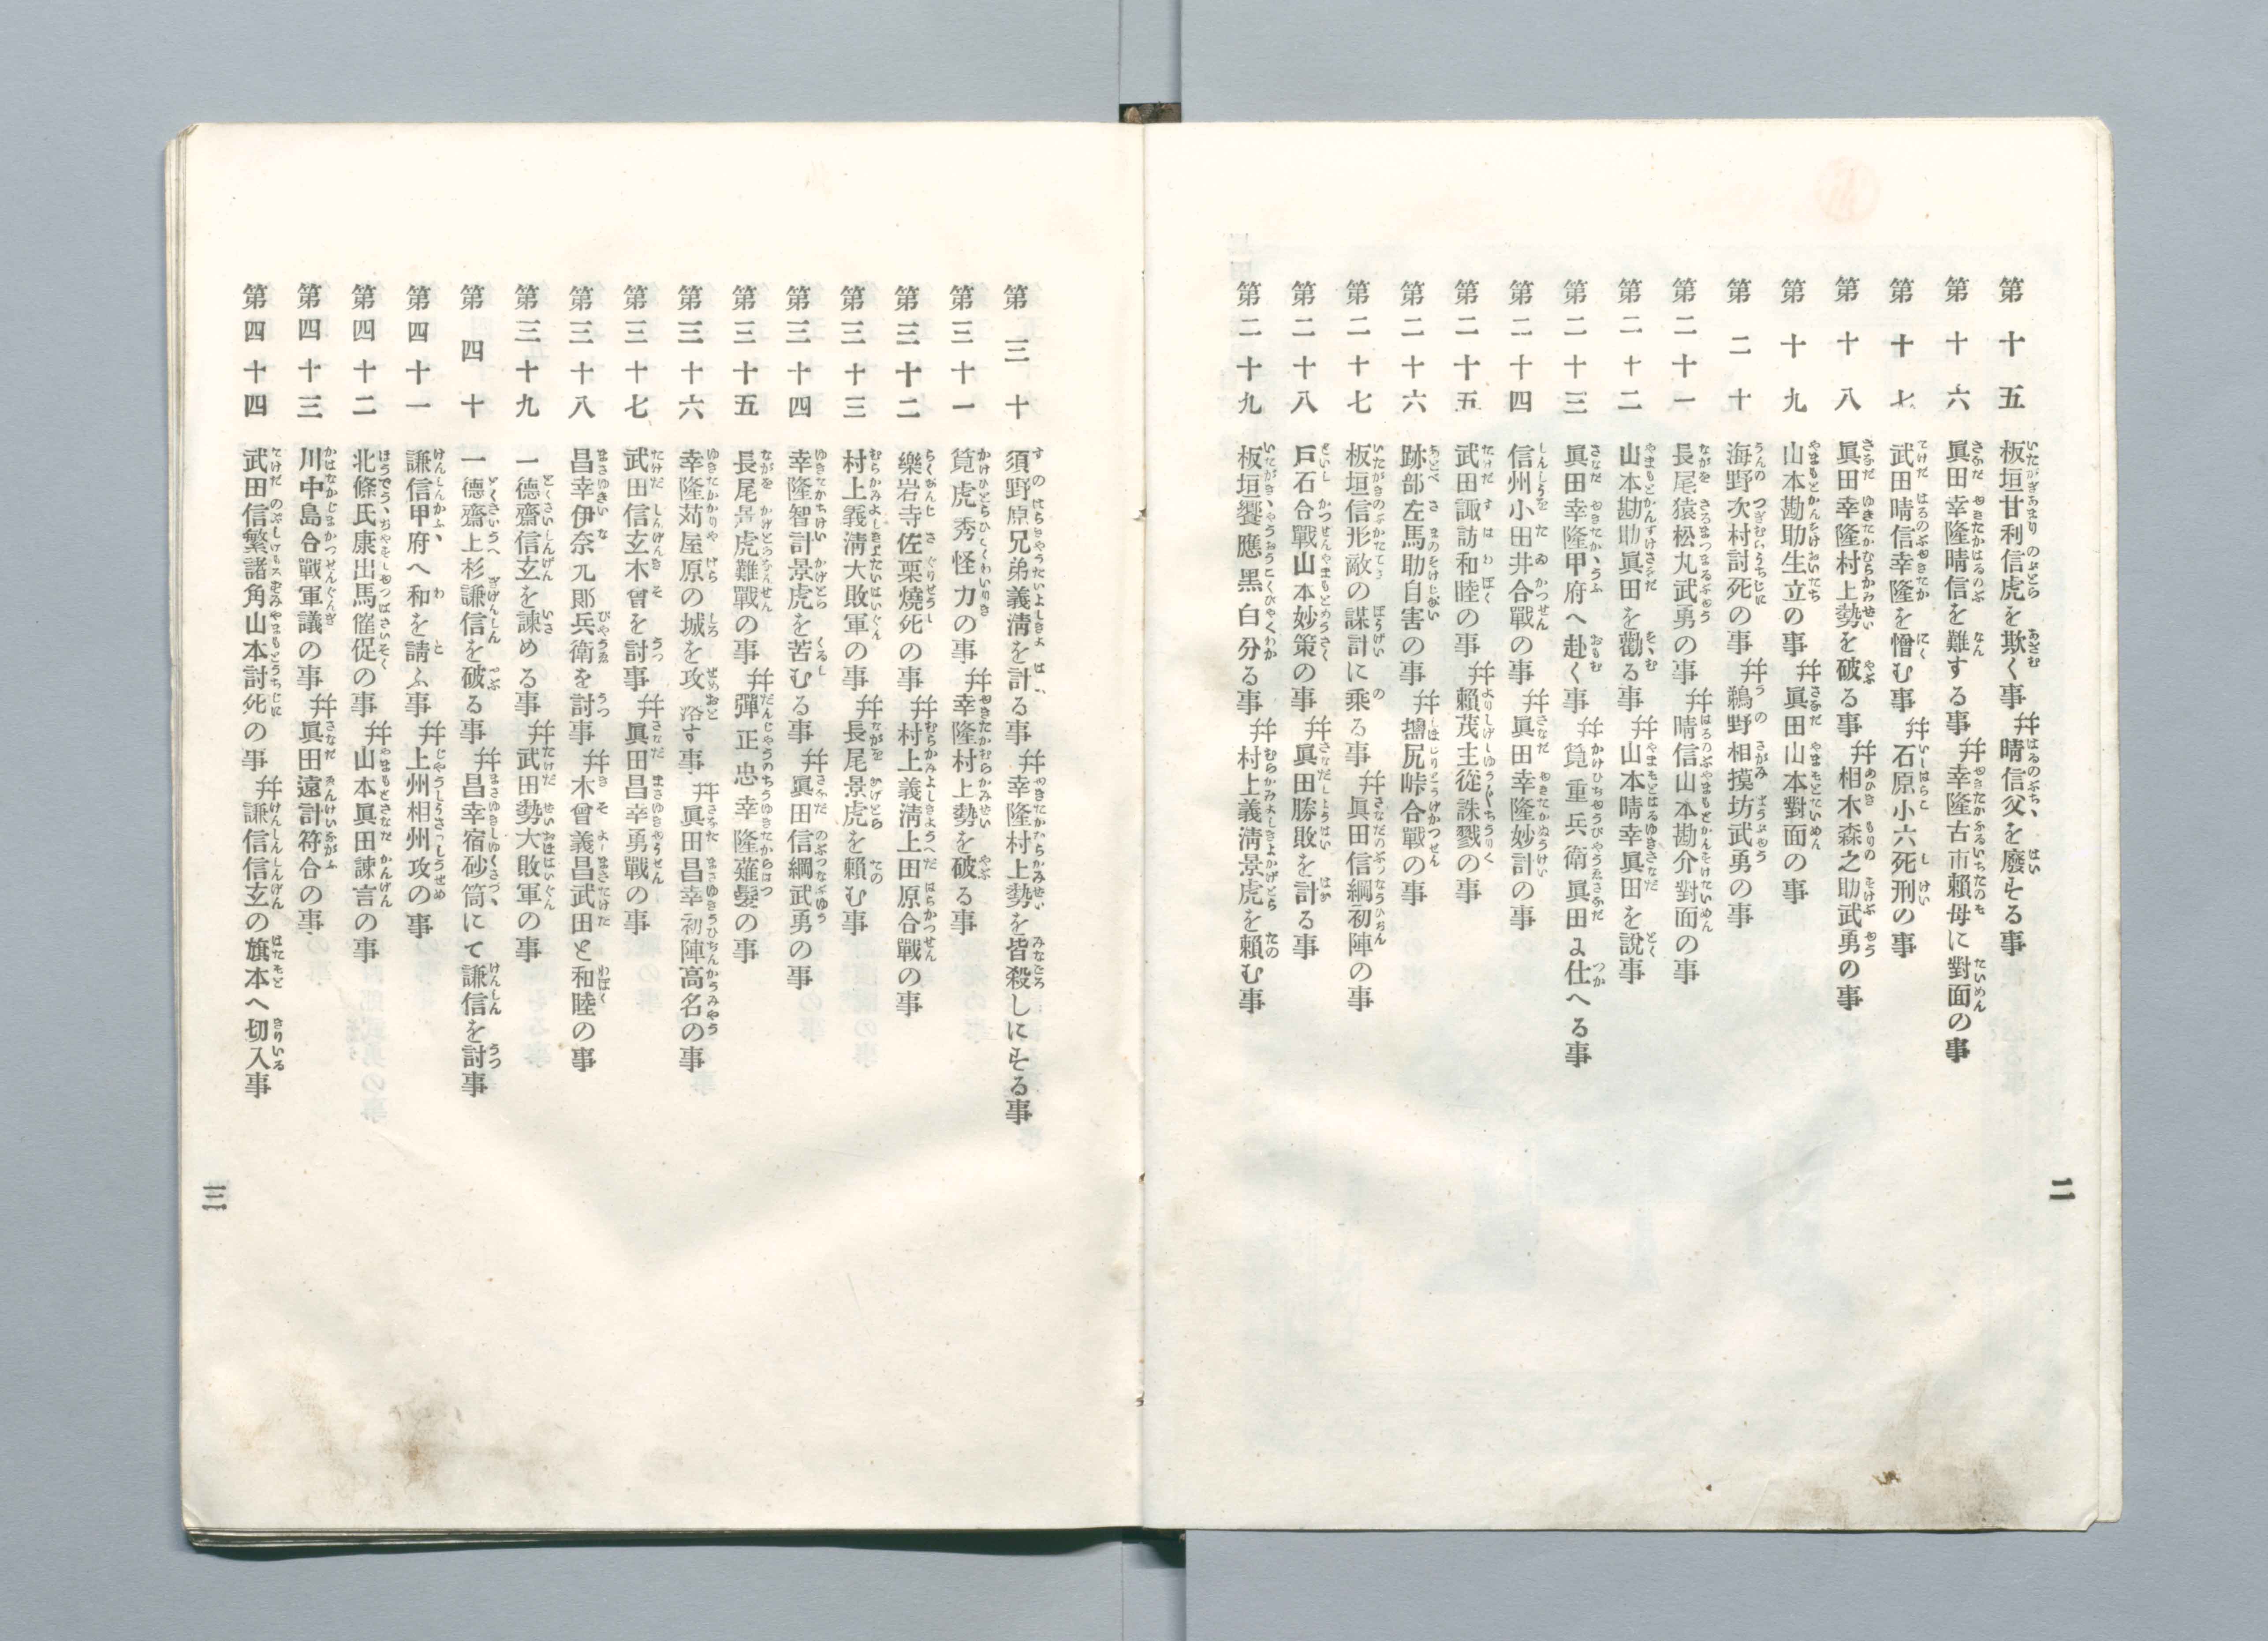 第十五 板垣甘利信虎を欺く事 幷晴信父を廢する事
第十六 眞田幸隆晴信を難する事 幷幸隆古市賴母に對面の事
第十七 武田晴信幸隆を憎む事 幷石原小六死刑の事
第十八 眞田幸隆村上勢を破る事 幷相木森之助武勇の事
第十九 山本勘助生立の事 幷眞田山本對面の事
第二十 海野次村討死の事 幷鵜野相摸坊武勇の事
第二十一 長尾猿松丸武勇の事 幷晴信山本勘介對面の事
第二十二 山本勘助眞田を勸る事 幷山本晴幸眞田を說事
第二十三 眞田幸隆甲府へ赴く事 幷筧重兵衛眞田に仕へる事
第二十四 信州小田井合戰の事 幷眞田幸隆妙計の事
第二十五 武田諏訪和睦の事 幷賴茂主從誅戮の事
第二十六 跡部左馬助自害の事 幷鹽尻峠合戰の事
第二十七 板垣信形敵の謀計に乘る事 幷眞田信綱初陣の事
第二十八 戸石合戰山本妙策の事 幷眞田勝敗を計る事
第二十九 板垣饗應黑白分る事 幷村上義淸景虎を賴む事
二
第三十 須野原兄弟義淸を計る事 幷幸隆村上勢を皆殺しにする事
第三十一 筧虎秀怪力の事 幷幸隆村上勢を破る事
第三十二 樂岩寺佐栗燒死の事 幷村上義淸上田原合戰の事
第三十三 村上義淸大敗軍の事 幷長尾景虎を賴む事
第三十四 幸隆智計景虎を苦むる事 幷眞田信綱武勇の事
第三十五 長尾景虎難戰の事 幷彈正忠幸隆薙髮の事
第三十六 幸隆苅屋原の城を攻落す事 幷眞田昌幸初陣高名の事
第三十七 武田信玄木曾を討事 幷眞田昌幸勇戰の事
第三十八 昌幸伊奈九郎兵衛を討事 幷木曾義昌武田と和睦の事
第三十九 一德齋信玄を諫める事 幷武田勢大敗軍の事
第四十 一德齋上杉謙信を破る事 幷昌幸宿砂筒にて謙信を討事
第四十一 謙信甲府へ和を請ふ事 幷上州相州攻の事
第四十二 北條氏康出馬催促の事 幷山本眞田諫言の事
第四十三 川中島合戰軍議の事 幷眞田遠計符合の事
第四十四 武田信繁諸角山本討死の事 幷謙信信玄の旗本へ切入事
三